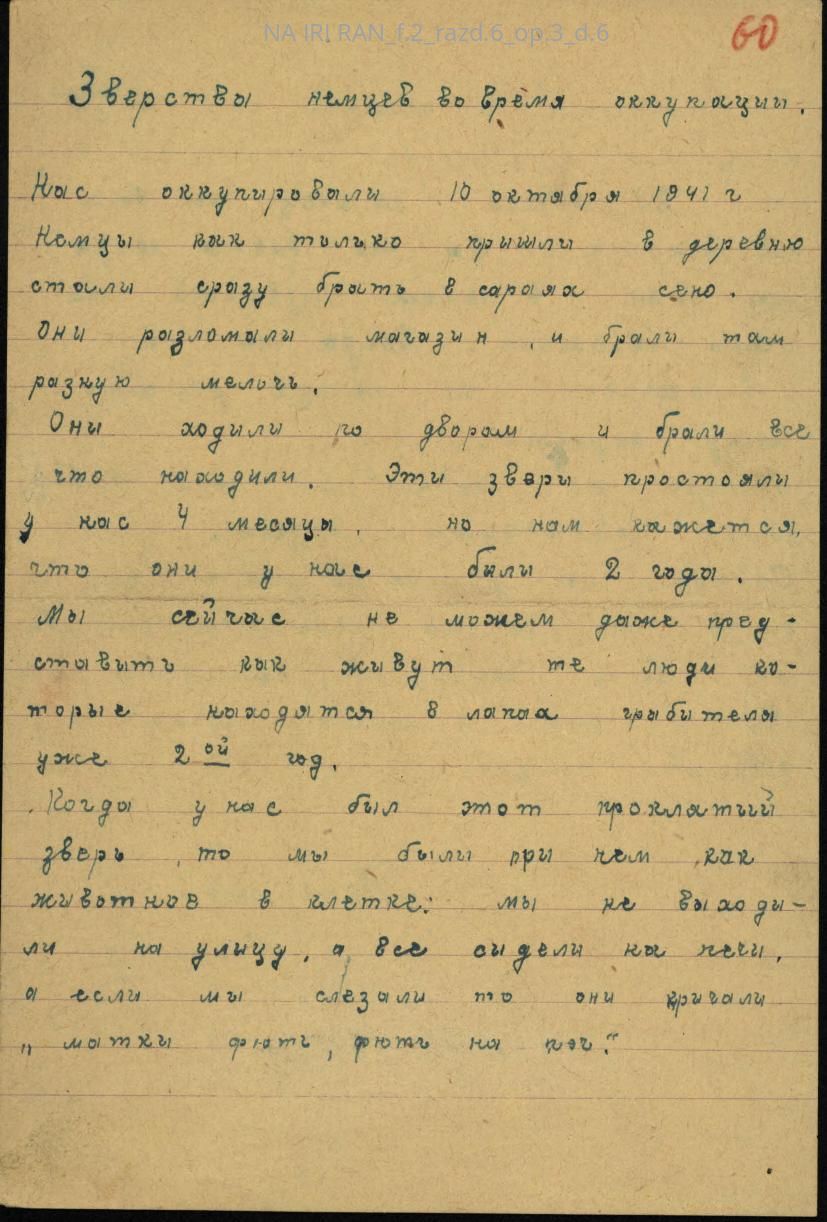 NA IRI RAN_f.2_razd.6_op.3_d.6
60
Зверства немцев во время оккупации.
Нас оккупировали 10 октября 1941 г
Немцы как только пришли в деревню
стали сразу брать в сараях сено.
Они разломали магазин, и брали там
разную мелочь.
Они ходили по дворам и брали все
что находили. Эти звери простояли
у нас 4 месяца, но нам кажется,
что они у нас были 2 года.
Мы сейчас не можем даже пред-
ставить как живут те люди ко-
торые находятся в лапах грабителя
уже 2ой год.
Когда у нас был этот проклятый
зверь, то мы были при нем как
животное в клетке: мы не выходи-
ли на улицу, а все сидели на печи,
а если мы слезали то они кричали
„матки фють, фють на печ."